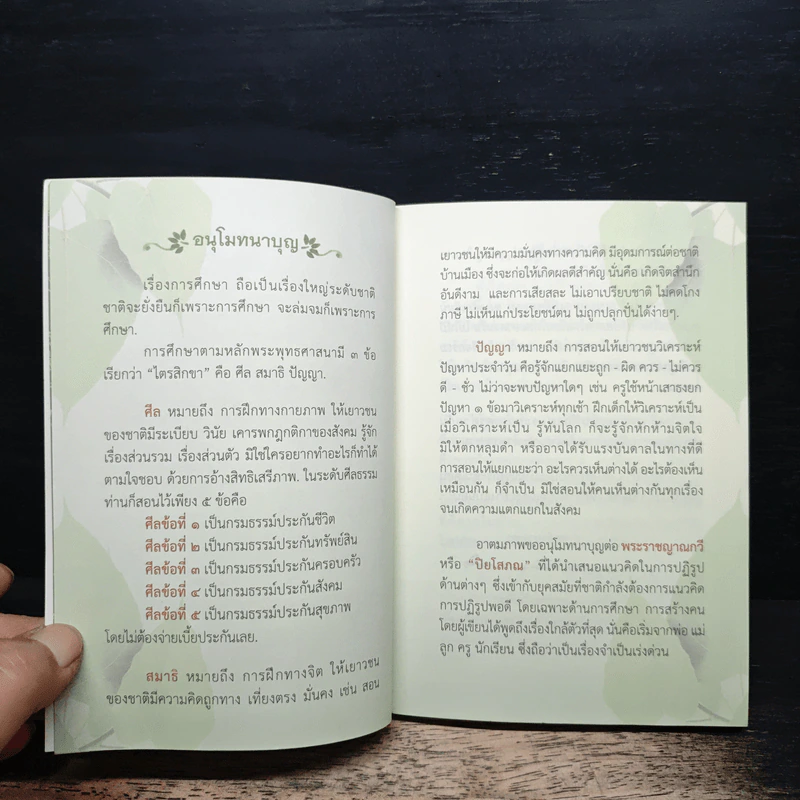 อนุโมทนาบุญ
เรื่องการศึกษา ถือเป็นเรื่องใหญ่ระดับชาติ
ชาติจะยั่งยืนก็เพราะการศึกษา จะล่มจมก็เพราะการ
ศึกษา.
การศึกษาตามหลักพระพุทธศาสนามี ๓ ข้อ
เรียกว่า "ไตรสิกขา" คือ ศีล สมาธิ ปัญญา.
ศีล หมายถึง การฝึกทางกายภาพ ให้เยาวชน
ของชาติมีระเบียบ วินัย เคารพกฎกติกาของสังคม รู้จัก
เรื่องส่วนรวม เรื่องส่วนตัว มิใช่ใครอยากทำอะไรก็ทำได้
ตามใจชอบ ด้วยการอ้างสิทธิเสรีภาพ. ในระดับศีลธรรม
ท่านก็สอนไว้เพียง ๕ ข้อคือ
ศีลข้อที่ ๑ เป็นกรมธรรม์ประกันชีวิต
ศีลข้อที่ ๒ เป็นกรมธรรม์ประกันทรัพย์สิน
ศีลข้อที่ ๓ เป็นกรมธรรม์ประกันครอบครัว
ศีลข้อที่ ๔ เป็นกรมธรรม์ประกันสังคม
ศีลข้อที่ ๕ เป็นกรมธรรม์ประกันสุขภาพ
โดยไม่ต้องจ่ายเบี้ยประกันเลย.
สมาธิ หมายถึง การฝึกทางจิต ให้เยาวชน
ของชาติมีความคิดถูกทาง เที่ยงตรง มั่นคง เช่น สอน
เยาวชนให้มีความมั่นคงทางความคิด มีอุดมการณ์ต่อชาติ
บ้านเมือง ซึ่งจะก่อให้เกิดผลดีสำคัญ นั่นคือ เกิดจิตสำนึก
อันดีงาม และการเสียสละ ไม่เอาเปรียบชาติ ไม่คดโกง
ภาษี ไม่เห็นแก่ประโยชน์ตน ไม่ถูกปลุกปั่นได้ง่ายๆ.
ปัญญา หมายถึง การสอนให้เยาวชนวิเคราะห์
ปัญหาประจำวัน คือรู้จักแยกแยะถูก - ผิด ควร - ไม่ควร
ดี - ชั่ว ไม่ว่าจะพบปัญหาใดๆ เช่น ครูใช้หน้าเสาธงยก
ปัญหา ๑ ข้อมาวิเคราะห์ทุกเช้า ฝึกเด็กให้วิเคราะห์เป็น
เมื่อวิเคราะห์เป็น รู้ทันโลก ก็จะรู้จักหักห้ามจิตใจ
มิให้ตกหลุมดำ หรืออาจได้รับแรงบันดาลในทางที่ดี
การสอนให้แยกแยะว่า อะไรควรเห็นต่างได้ อะไรต้องเห็น
เหมือนกัน ก็จำเป็น มิใช่สอนให้คนเห็นต่างกันทุกเรื่อง
จนเกิดความแตกแยกในสังคม
อาตมภาพขออนุโมทนาบุญต่อ พระราชญาณกวี
หรือ "ปิยโสภณ" ที่ได้นำเสนอแนวคิดในการปฏิรูป
ด้านต่างๆ ซึ่งเข้ากับยุคสมัยที่ชาติกำลังต้องการแนวคิด
การปฏิรูปพอดี โดยเฉพาะด้านการศึกษา การสร้างคน
โดยผู้เขียนได้พูดถึงเรื่องใกล้ตัวที่สุด นั่นคือเริ่มจากพ่อ แม่
ลูก ครู นักเรียน ซึ่งถือว่าเป็นเรื่องจำเป็นเร่งด่วน